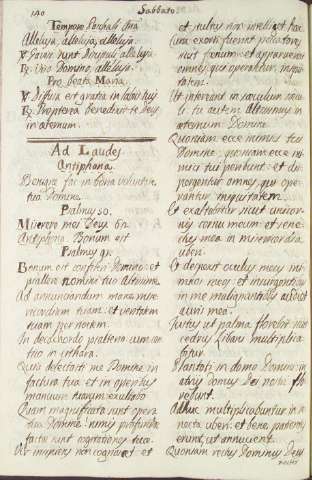 140
Sabbato
Tempore Paschali Ana
Alleluja, alleluja, alleluja.
℣ Gavisi sunt Discipuli alleluja
℟. Viso Domino, alleluja.
Pro Beata Maria.
℣ Difusa est gratia in labiis tuis
℟. Propterea benedixit te Deus
in æternum.
Ad Laudes
Antiphona.
Benigne fac in bona voluntate
tua Domine.
Psalmus 50.
Miserere mei Deus
Antiphona. Bonum est
Psalmus 91.
Bonum est confiteri Domino: et
psallere nomini tuo Altissime.
Ad annunciandum mane mise-
ricordiam tuam: et veritatem
tuam per noctem.
In decachordo psalterio cum can-
tico in cithara.
Quia delectasti me Domine in
factura tua: et in operibus
manuum tuarum exultabo.
Quam magnificata sunt opera
tua Domine: nimis profundæ
factæ sunt cogitationes tuæ.
Vir insipiens non cognoscet: et
et stultus non intelliget hæc
cum exorti fuerint peccatores
sicut fœnum: et apparuerint
omnes, qui operantur, iniqui-
tatem.
Ut intereant in sæculum sæcu-
li: tu autem Altissimus in
æternum Domine.
Quoniam ecce inimici tui
Domine, quoniam ecce ini-
mici tui peribunt: et dis-
pergentur omnes, qui ope-
rantur iniquitatem.
Et exaltabitur sicut unicor-
nis cornu meum: et sene-
ctus mea in misericordia
uberi.
Et despexit oculus meus ini-
micos meos: et insurgentibus
in me malignantibus audiet
auris mea.
Justus ut palma florebit: sicut
cedrus Libani multiplica-
bitur.
Plantati in domo Domini: in
atriis domus Dei nostri flo-
rebunt.
Adhuc multiplicabuntur in se-
necta uberi: et bene patientes
erunt, ut annuncient.
Quoniam rectus Dominus Deus
noster